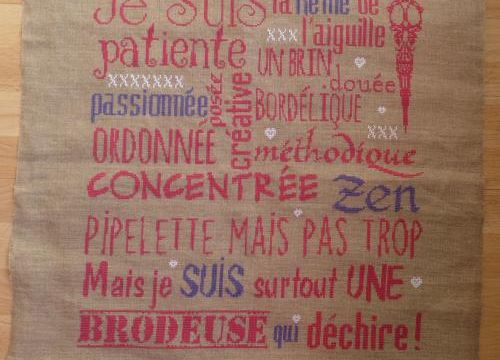 Je suis
la reine de
patiente
xxx l'aiguille
UN BRIN
xxxxxxx
douée
passionnée
posée
créative
BORDÉLIQUE
xxx
ORDONNÉE
méthodique
CONCENTRÉE Zen
PIPELETTE MAIS PAS TROP
Mais je SUIS surtout UNE
BRODEUSE qui déchire!